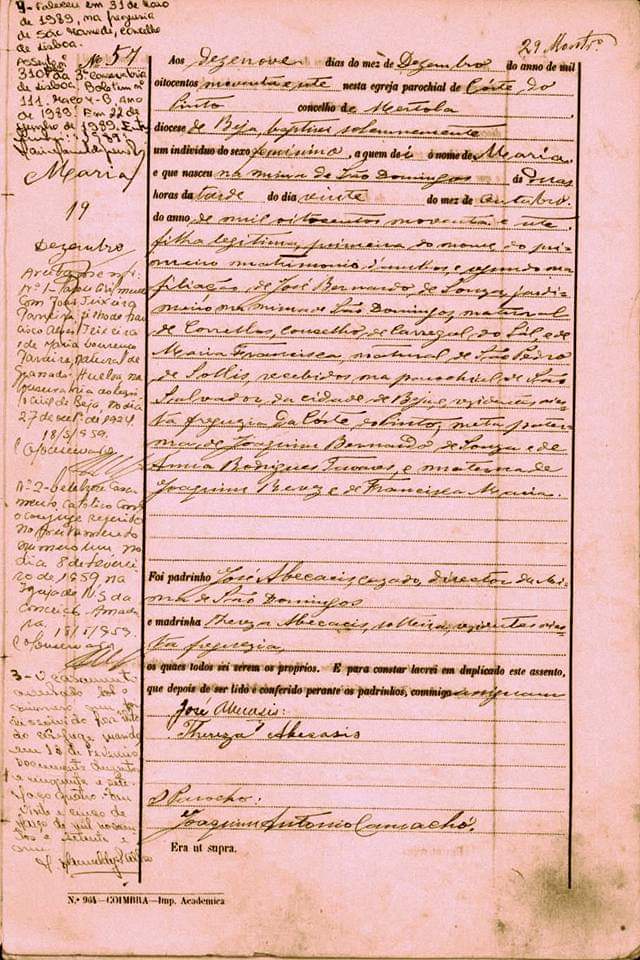 4- Faleceu em 31 de Maio
de 1989, na freguesia
de São Mamede, concelho
de Lisboa.
Assento nº
310 da 3ª Conservatória
de Lisboa. Boletim nº
111. Maço 4-B, ano
de 1989. Em 22 de
Junho de 1989.
Maria
19
Dezembro
Nº 1-
com João Teixeira
de Maria Lourenço
natural de
Huelva, na
Civil de Beja, no dia
27 de
18/5/959.
O Conservador
Nº 2-
católico com
o conjuge referido
no averbamento
numero um, no
dia 8 de Feverei
ro de 1959, na
Igreja de N.S da
Conceição
18/5/959.
O Conservador
3- O casamento
dissolvido por
do cônjuge marido
em 18 de Fevereiro
Documento
cinquenta e sete
maço quatro. Em
vinte e cinco de
de mil novecen
tos e setenta e
29 Montrº
Nº 57
Aos dezenove dias do mez de Dezembro do anno de mil
oitocentos noventa e sete nesta egreja parochial de Côrte do
Pinto concelho de Mertola
diocese de Beja, baptisei solemnemente
um individuo do sexo feminino, a quem dei o nome de Maria
e que nasceu na mina de São Domingos ás duas
horas da tarde do dia vinte do mez de outubro
do anno de mil oitocentos noventa e sete,
filha legitima, primeira do nome, do pri-
meiro matrimonio d'ambos, e segunda na
filiação, de José Bernardo de Souza, jardi-
neiro na mina de São Domingos, natural
de Correllos, concelho de Carregal do Sal, e de
Maria Francisca, natural de São Pedro
de Sollis, recebidos na parochial de São
Salvador, da cidade de Beja, residentes nes-
ta freguezia da Côrte do Pinto; neta pater-
na de Joaquim Bernardo de Souza e de
Anna Rodrigues Tavares, e materna de
Joaquim e de Francisca Maria.
Foi padrinho José Abecacis, cazado, director da Mi-
na de São Domingos
e madrinha Thereza Abecacis, solteira, residentes nes-
ta freguezia,
os quaes todos sei serem os proprios. E para constar lavrei em duplicado este assento,
que depois de ser lido e conferido perante os padrinhos, commigo assignaram
José Abecasis
Thereza Abecasis
O Parocho:
Joaquim Antonio Camacho.
Era ut supra.
N.º 964—COIMBRA—Imp. Academica